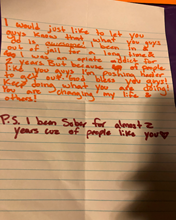 I would just like to let you
guys know that what you guys
do is awesome! I been in &
out of jail for a long time &
I was an opiate addict for
2 years But because of people
like you guys I'm pushing harder
to get out. God bless you guys!
Keep doing what you are doing!
You are changing my life &
others!
P.S. I been Sober for almost 2
years cuz of people like you♡